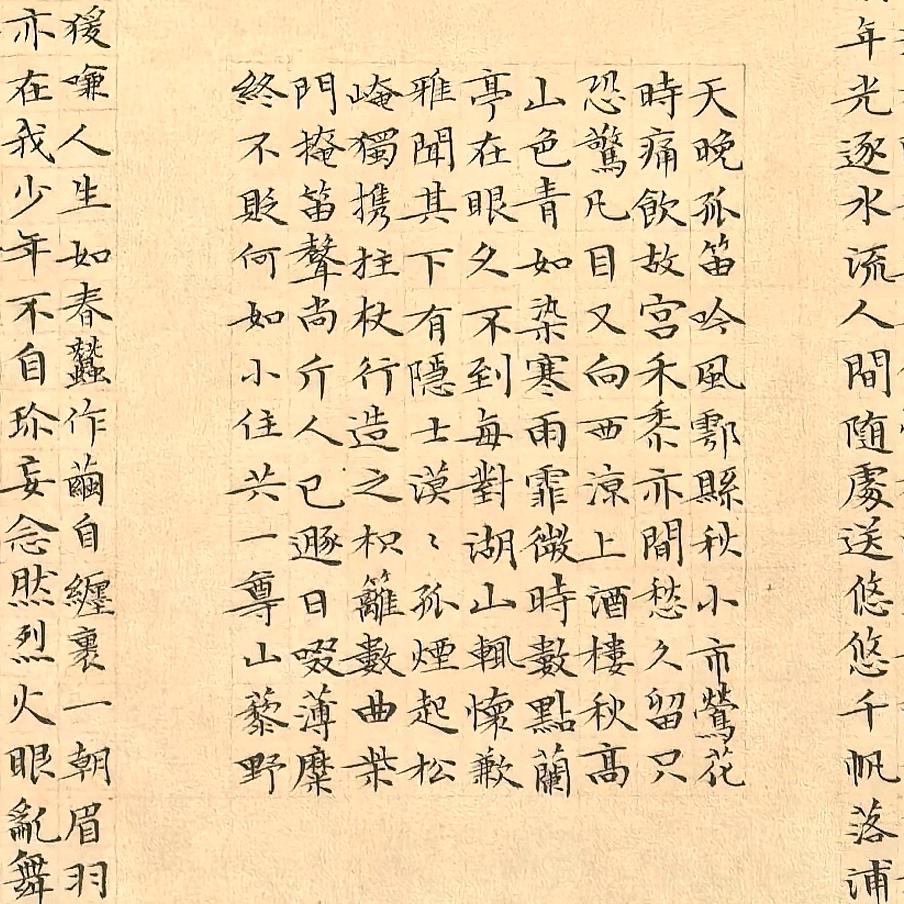 年光逐水流人間随處送悠悠千帆落浦
天晚孤笛吟風鄠縣秋小市鶯花
時痛飲故宮禾黍亦間愁久留只
恐驚凡目又向西涼上酒樓秋高
山色青如染寒雨霏微時數點蘭
亭在眼久不到每對湖山輒懷歉
雅聞其下有隱士漠〻孤煙起松
崦獨携拄杖行造之枳籬數曲柴
門掩笛聲尚斤人已遯日啜薄糜
終不貶何如小住共一尊山藜野
猨嗛人生如春蠶作繭自纏裹一朝眉羽
亦在我少年不自珎妄念然烈火眼亂舞